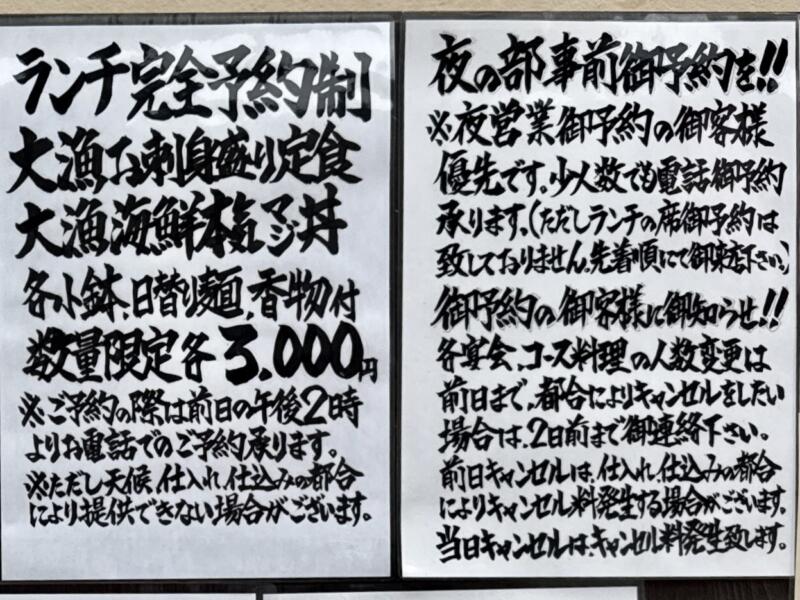 ランチ完全予約制
大漁お刺身盛り定食
大漁海鮮本気マジ丼
各小鉢、日替り麺、香物付
数量限定各3,000円
※ご予約の際は前日の午後2時
よりお電話でのご予約承ります。
※ただし天候、仕入れ、仕込みの都合
により提供できない場合がございます。
夜の部事前御予約を!!
※夜営業御予約の御客様
優先です。少人数でも電話御予約
承ります。(ただしランチの席御予約は
致しておりません。先着順にて御来店下さい。)
御予約の御客様に御知らせ!!
各宴会、コース料理の人数変更は
前日まで。都合によりキャンセルをしたい
場合は、2日前まで御連絡下さい。
前日キャンセルは、仕入れ、仕込みの都合
によりキャンセル料発生する場合がございます。
当日キャンセルは、キャンセル料発生致します。